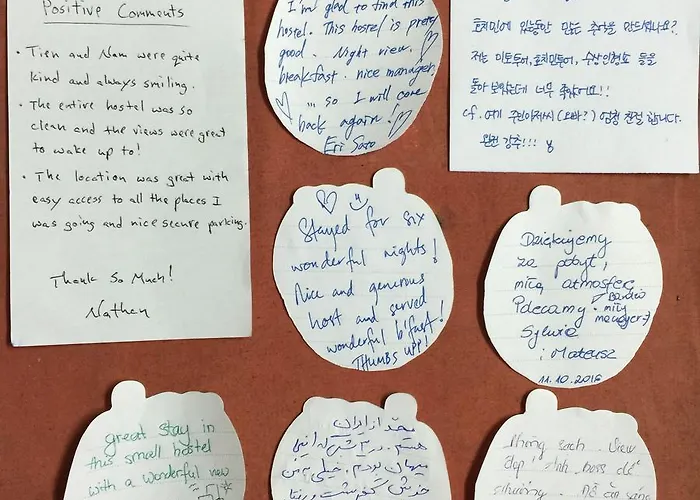 Positive Comments
• Tien and Nam were quite
kind and always smiling.
• The entire hostel was so
clean and the views were great
to wake up to!
• The location was great with
easy access to all the places I
was going and nice secure parking.
Thank So Much!
Nathan
I'm glad to find this
hostel. This hostel is pretty
good. Night view.
breakfast. nice manager.
... so I will come
back again!
Eri Sato
호치민에 있는동안 많은 추억을 만드셨나요?
저는 미토투어, 호치민투어, 수상인형극 등을
돌아보았는데 너무 좋았어요!!
cf. 여기 주인아저씨(오빠?) 엄청 친절합니다.
완전 강추!!!
Stayed for six
wonderful nights!
Nice and generous
host and served
wonderful b'fast!
THUMBS UPP!
Dziękujemy
za pobyt,
miłą atmosferę
Polecamy • Bardzo miły
manager :)
Sylwia
i Mateusz
11.10.2016
great stay in
this small hostel
with a wonderful new
محمد از ایران
هستم. در
مهمان بودم. خیلی
Phòng sạch. View
đẹp! Anh boss dễ
thương.